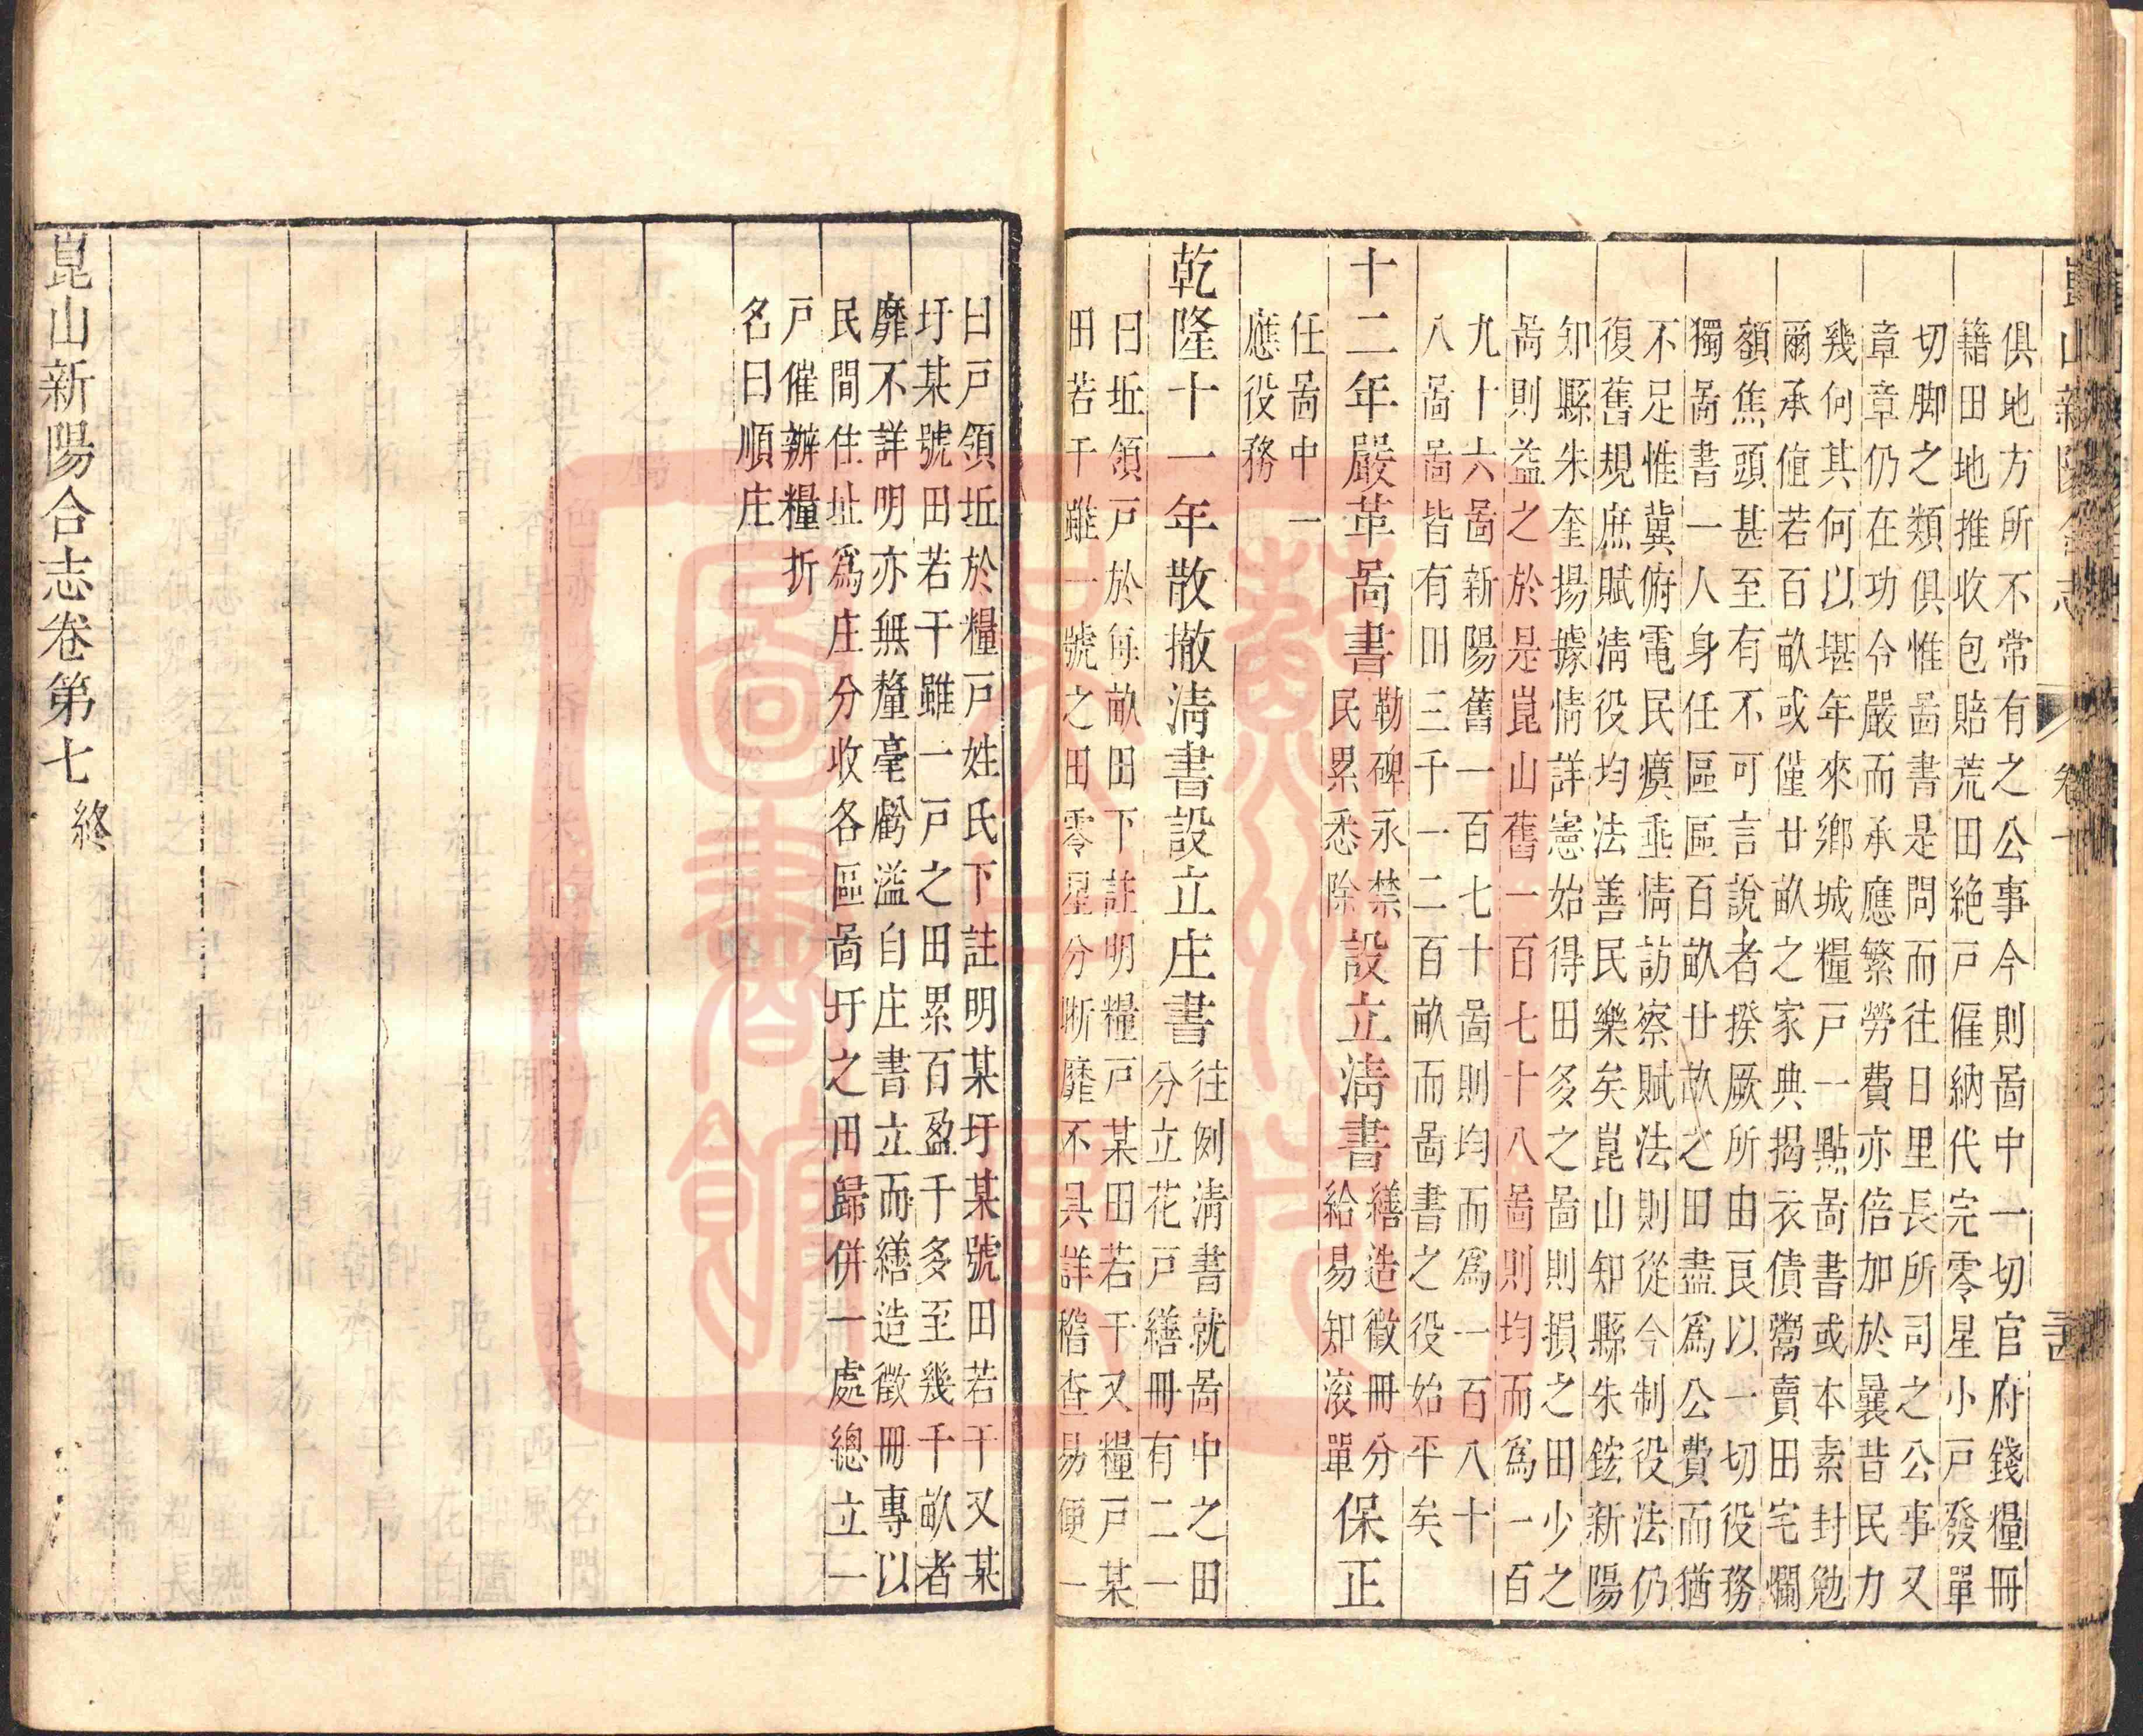 崑山新陽合志
俱地方所不常有之公事今則啚中一切官府錢糧冊
籍田地推收包賠荒田絶戸僱納代完零星小戸發單
切脚之類俱惟啚書是問而往日里長所司之公事又
章章仍在功令嚴而承應繁勞費亦倍加於曩昔民力
幾何其何以堪年來鄉城糧戸一點啚書或本素封勉
爾承値若百畝或僅廿畝之家典揭衣債鬻賣田宅爛
額焦頭甚至有不可言說者揆厥所由良以一切役務
獨啚書一人身任區區百畝廿畝之田盡爲公費而猶
不足惟冀俯電民瘼垂情訪察賦法則從今制役法仍
復舊規庶賦淸役均法善民樂矣崑山知縣朱鋐新陽
知縣朱奎揚據情詳憲始得田多之啚則損之田少之
啚則益之於是崑山舊一百七十八啚則均而爲一百
九十六啚新陽舊一百七十啚則均而爲一百八十
八啚啚皆有田三千一二百畝而啚書之役始平矣
十二年嚴革啚書勒碑永禁民累悉除設立淸書繕造徵冊分給易知滚單保正
任啚中一
應役務
乾隆十一年散撤淸書設立庄書往例淸書就啚中之田分立花戸繕冊有二一
曰坵領戸於每畝田下註明糧戸某田若干又糧戸某
田若干雖一號之田零星分晰靡不具詳稽查易便一
曰戸領坵於糧戸姓氏下註明某圩某號田若干又某
圩某號田若干雖一戸之田累百盈千多至幾千畝者
靡不詳明亦無釐毫虧溢自庄書立而繕造徵冊專以
民間住址爲庄分收各區啚圩之田歸併一處總立一
戸催辦糧折
名曰順庄
崑山新陽合志卷第七終
蘇州市
吳中區
圖書館